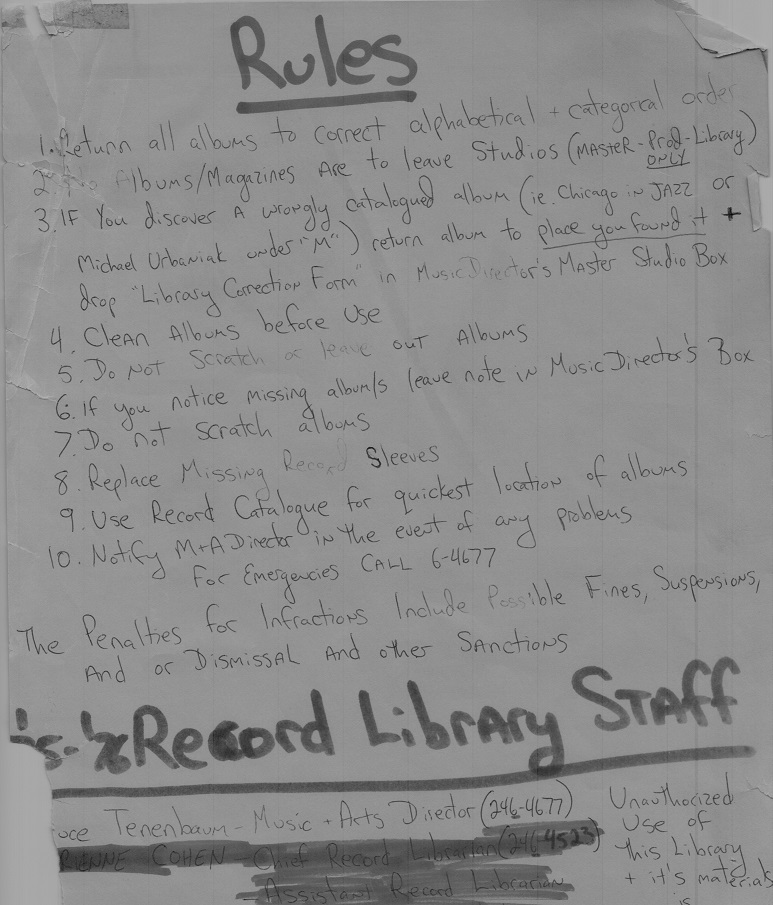 Rules
1. Return all albums to correct alphabetical + categorical order
2. No Albums/Magazines Are to leave Studios (MASTER-Prod-Library)
ONLY
3. IF You discover A wrongly catalogued album (ie. Chicago in JAZZ or
Michael Urbaniak under "M") return album to place you found it +
drop "Library Correction Form" in Music Director's Master Studio Box
4. Clean Albums before Use
5. Do Not Scratch or leave out Albums
6. If you notice missing album/s leave note in Music Director's Box
7. Do not scratch albums
8. Replace Missing Record Sleeves
9. Use Record Catalogue for quickest location of albums
10. Notify M+A Director in the event of any problems
For Emergencies CALL 6-4677
The Penalties for Infractions Include Possible Fines, Suspensions,
And or Dismissal And other Sanctions
Record Library Staff
uce Tenenbaum - Music + Arts Director (246-4677)
RIENNE COHEN - Chief Record Librarian (246-4523)
- Assistant Record Librarian
Unauthorized
Use of
this Library
+ it's materials
is